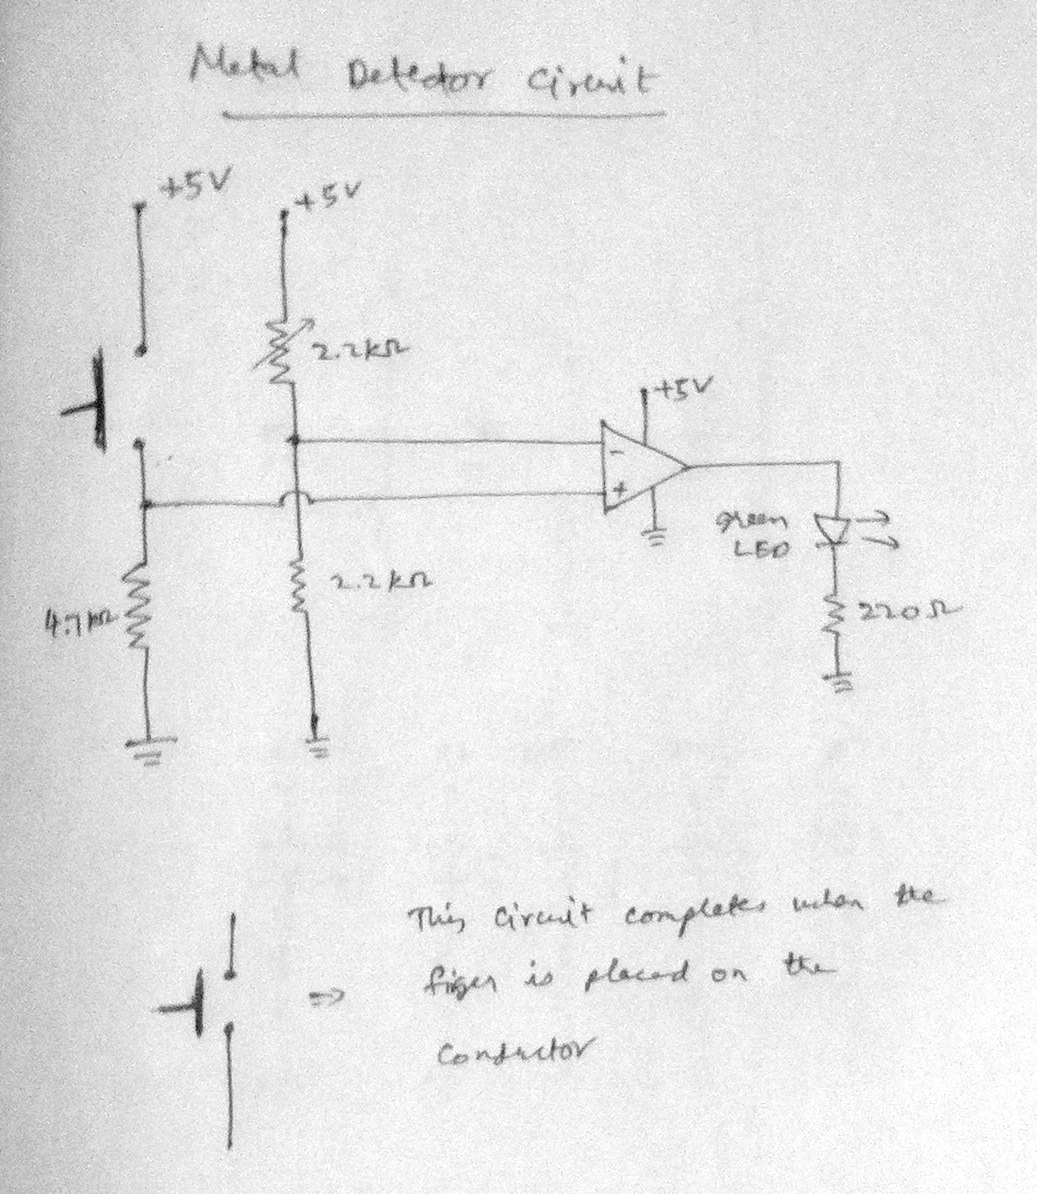 Metal Detector Circuit
+5V
+5V
2.2kΩ
+5V
-
+
green
LED
2.2kΩ
4.7kΩ
220Ω
This circuit completes when the
figer is placed on the
conductor